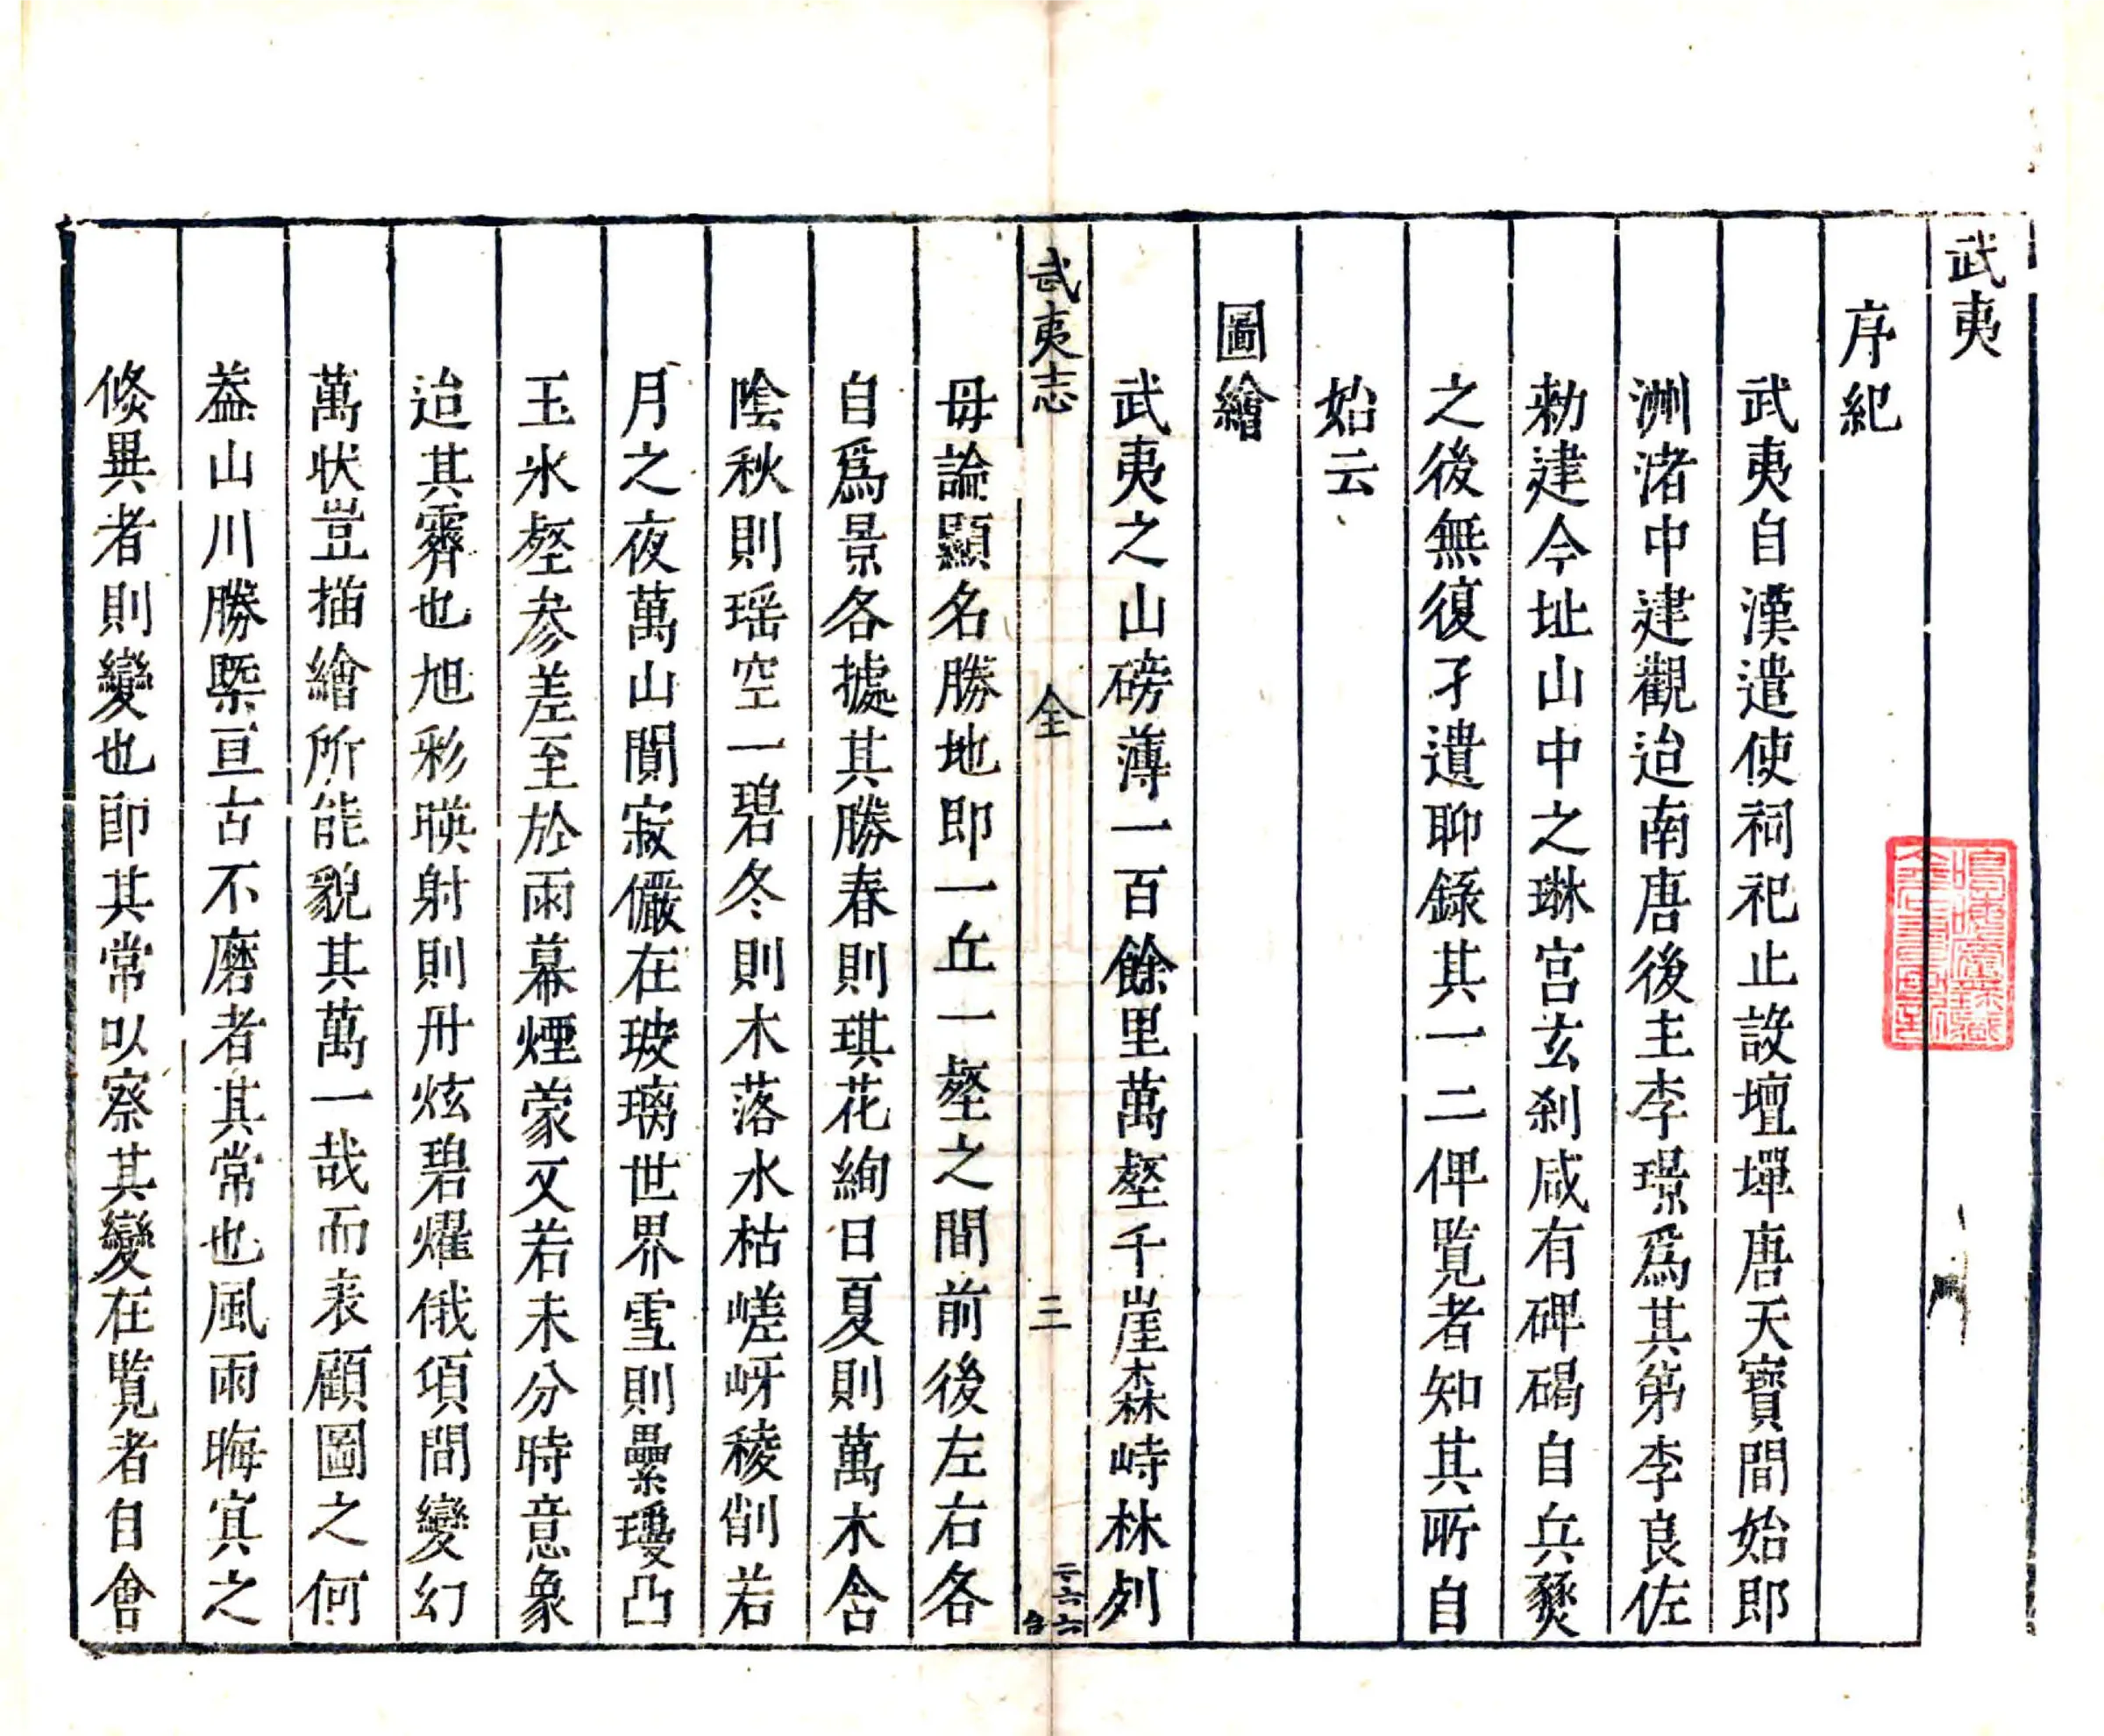 武夷
序紀
武夷自漢遣使祠祀止設壇墠唐天寶間始即
洲渚中建觀迨南唐後主李璟爲其第李良佐
勑建今址山中之琳宫玄刹咸有碑碣自兵燹
之後無復孑遺聊錄其一二俾覧者知其所自
始云
圖繪
武夷之山磅薄一百餘里萬壑千崖森峙林列
武夷志 全 三 二六六
毋論顯名勝地即一丘一壑之間前後左右各
自爲景各據其勝春則琪花絢日夏則萬木含
陰秋則瑶空一碧冬則木落水枯嵯岈稜削若
月之夜萬山閴寂儼在玻璃世界雪則壘瓊凸
玉氷壑參差至於雨幕煙蒙又若未分時意象
迨其霽也旭彩暎射則丹炫碧燿俄項間變幻
萬状豈描繪所能貌其萬一哉而表顧圖之何
葢山川勝槩亘古不磨者其常也風雨晦冥之
倐異者則變也即其常以察其變在覧者自會